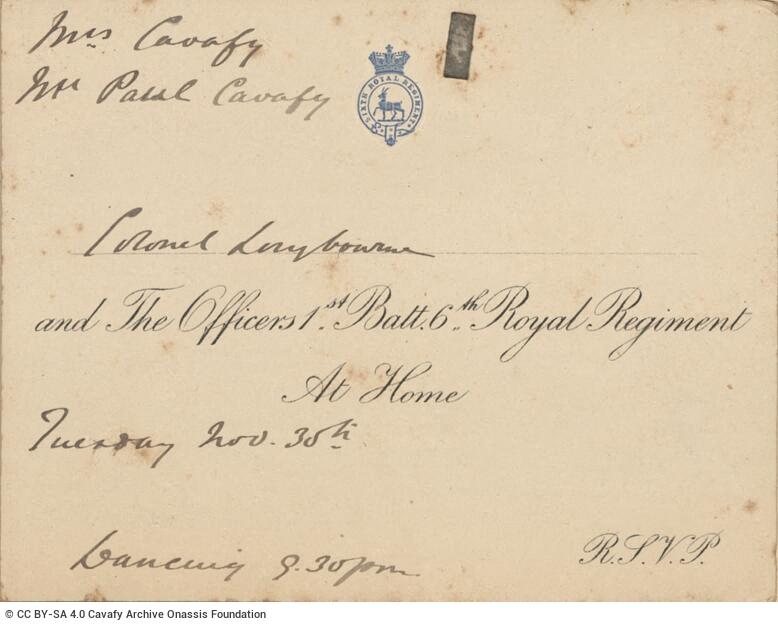 Mrs Cavafy
Mr Paul Cavafy
SIXTH ROYAL REGIMENT
Colonel Longbourne
and The Officers 1st Batt. 6th Royal Regiment
At Home
Tuesday Nov. 30th
Dancing 9.30pm
R.S.V.P.
© CC BY-SA 4.0 Cavafy Archive Onassis Foundation